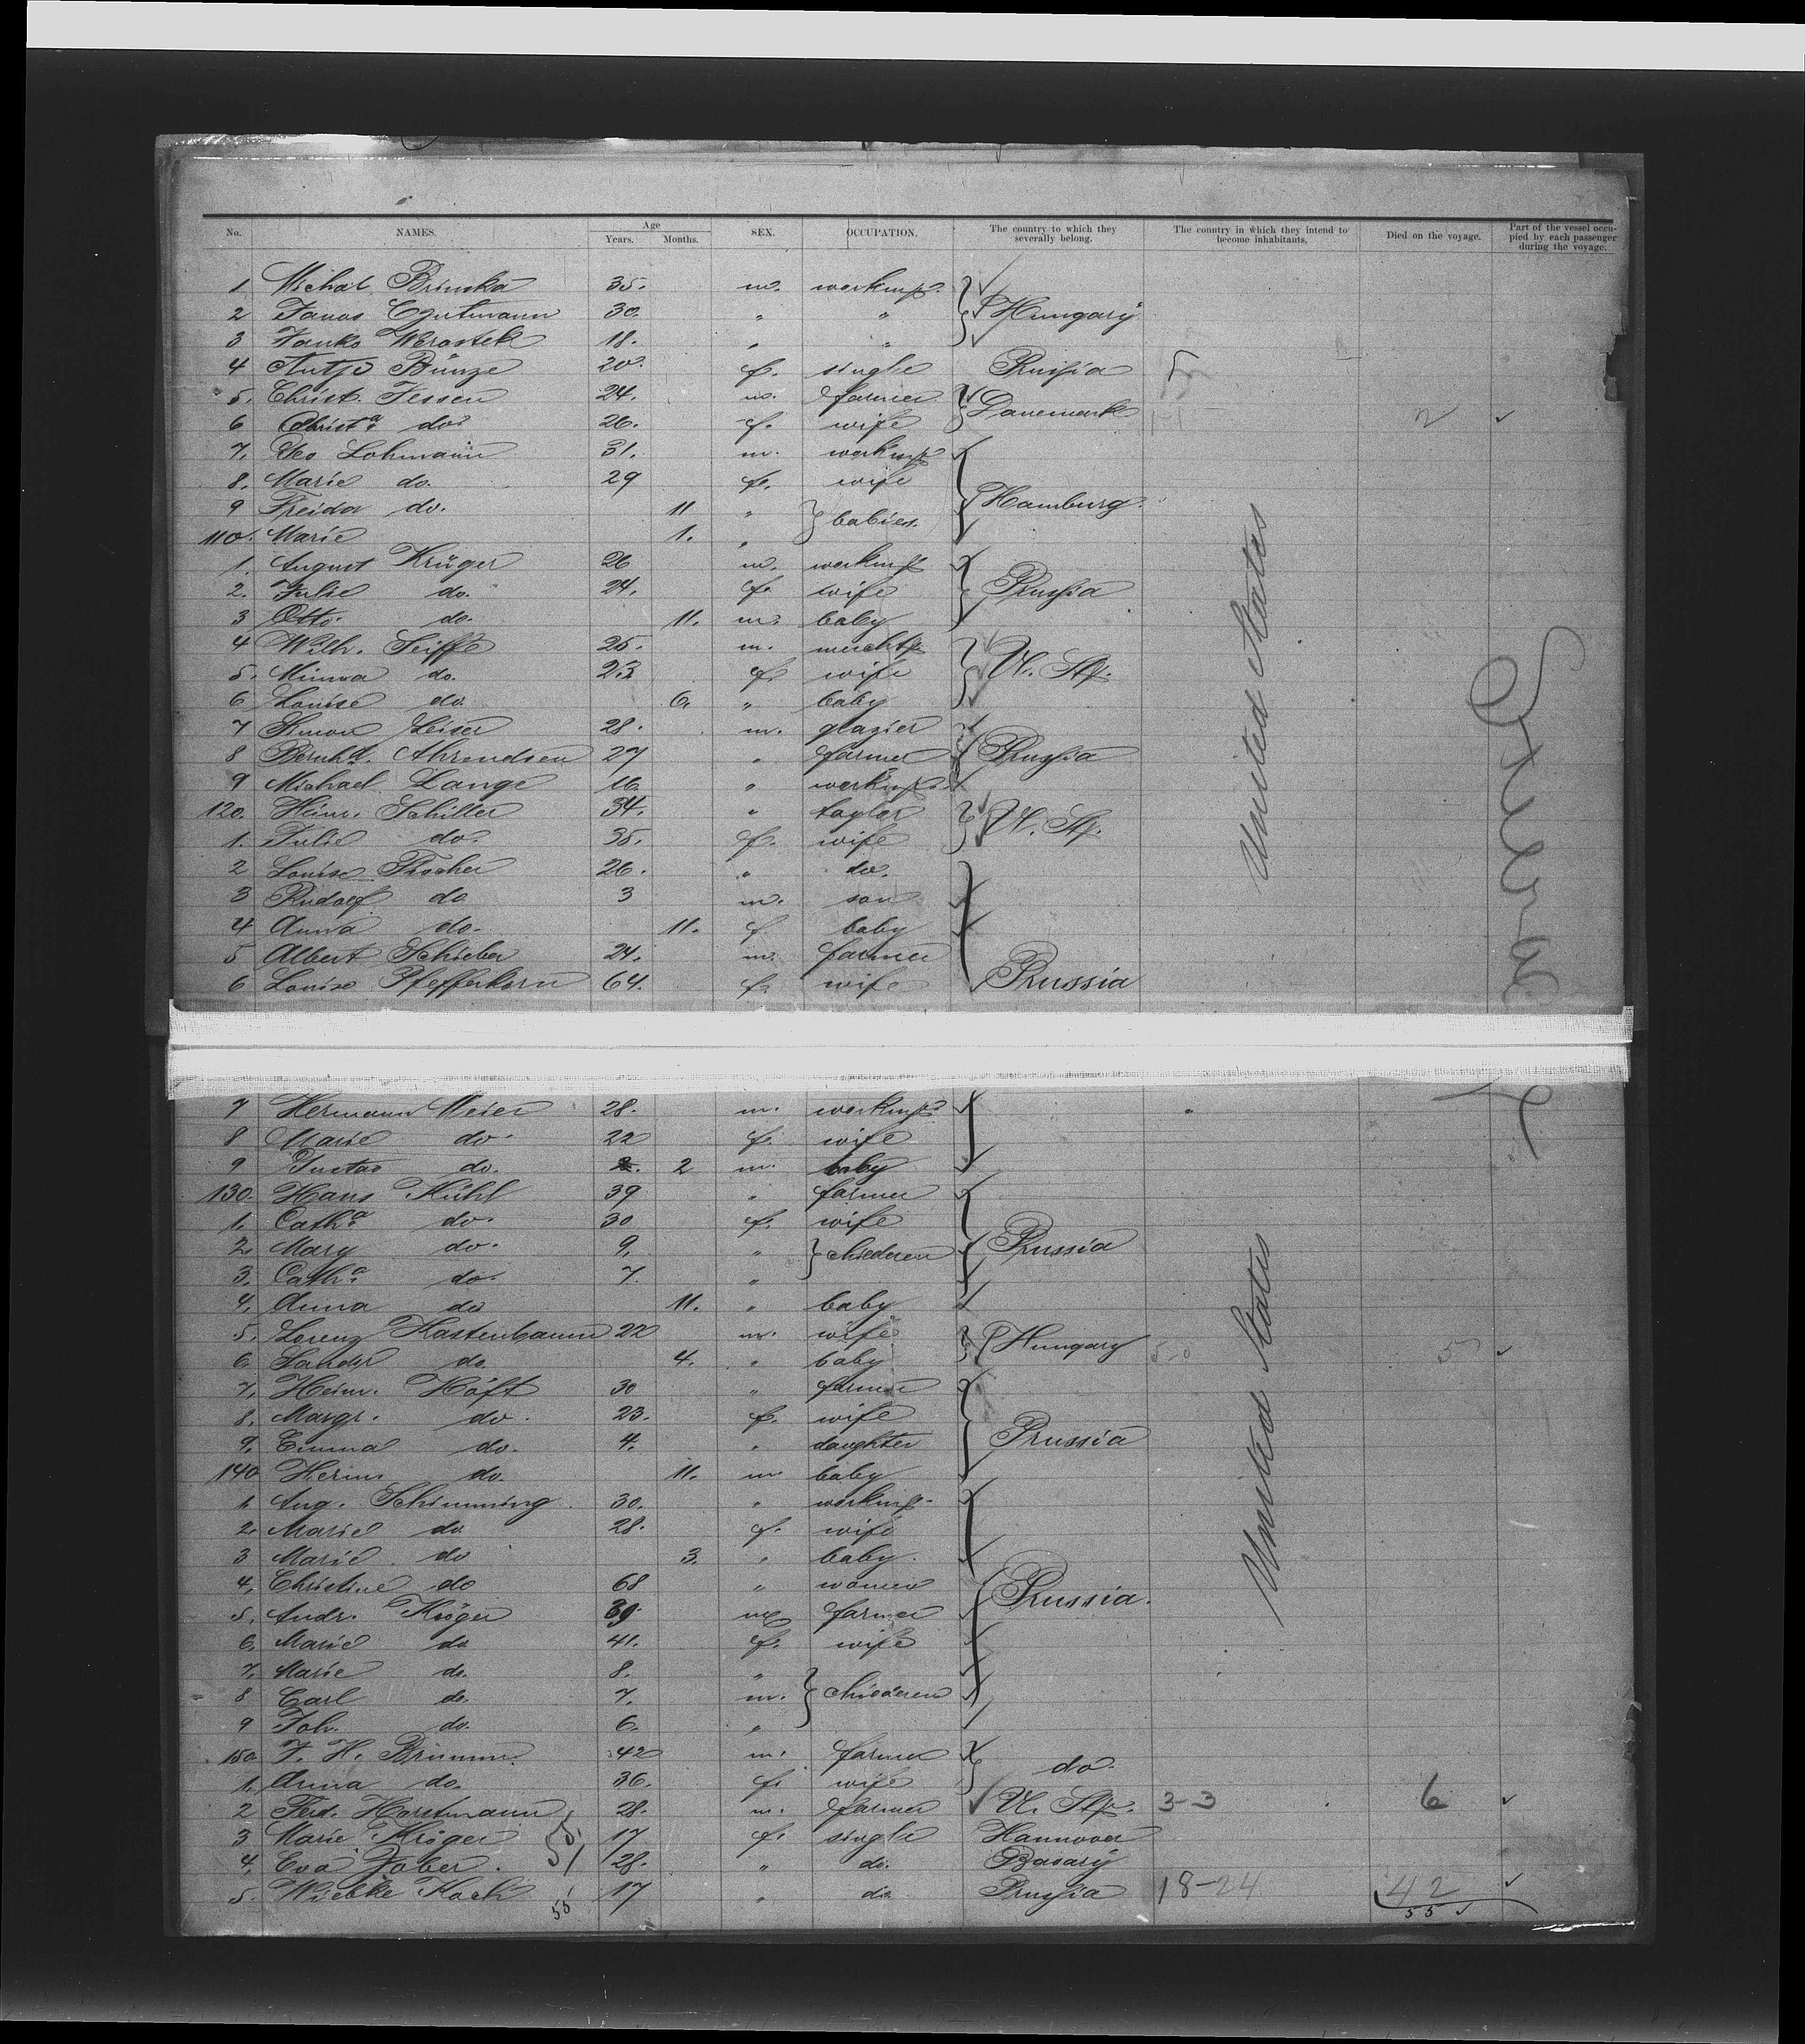 No. NAMES. Age Years. Months. SEX. OCCUPATION. The country to which they severally belong. The country in which they intend to become inhabitants. Died on the voyage. Part of the vessel occupied by each passenger during the voyage.
1 Michal Brinska 35. m. workmn.
2 Janos 30. " " Hungary
3 Janko 18. " "
4 Antje Bünze 20. f. single Russia
5. Christ. Jessen 24. m. farmer
6 Christa. do. 26. f. wife Danemark 2
7. Geo Lohmann 31. m. workmn
8. Marie do. 29 f. wife
9 Freida do. 11 " babies. Hamburg.
110. Marie 1. "
1. August Krüger 26 m. workmn
2. Julie do. 24. f. wife Prussia
3 Otto. do. 11. m. baby
4 Wilh. Seiffe 25. m. merchts
5. Minna do. 23 f. wife U. Sts.
6 Louise do. 6. " baby
7 Simon Leiser 28. m. glazier
8 Bernhd. Ahrendsen 27 " farmer Prussia
9 Michael Lange 16 " workmn.
120. Heinr. Schiller 34. " taylor
1. Julie do. 35. f. wife U. Sts.
2 Louise Fischer 26. " do.
3 Rudolf do 3 m. son
4 Anna do. 11. f. baby
5 Albert Schieber 24. m. farmer
6 Louise Pfefferkorn 64. f. wife Prussia
United States
7 Hermann Meier 28. m. workmn.
8 Marie do. 22 f. wife
9 Gustav do. 2 m. baby
130. Hans Kühl 39 " farmer
1. Catha. do. 30 f. wife
2. Mary do. 9. " childeren Prussia
3. Catha. do. 7. "
4. Anna do 11. " baby
5. Lorenz Kastenbaum 22 m. wife
6. Sander do. 4. " baby Hungary 5-0 5
7. Heinr. Höft 30 " farmer
8. Margr. do. 23. f. wife
9. Emma do. 4. " daughter Prussia
140 Herm do. 11. m baby
1. Aug. Schimming. 30. " workmn.
2. Marie do. 28. f. wife
3 Marie do 3. " baby.
4. Christine do 68 " women Prussia.
5. Andr. Kröger 39. m farmer
6. Marie do 41. f. wife
7. Marie do. 8. " childeren
8 Carl do. 7. m.
9 Joh. do. 6. "
150. J. H. Brumm. 42 m. farmer
1. Anna do. 36. f. wife do.
2 Ferd. Horstmann 28. m. farmer U. Sts. 3-3 6
3 Marie Kröger 17 f. single Hannover
4. Eva Faber. 28. " do. Bavary
5. Wiebke Koch 17 " do. Prussia 18-24 42
55 55
United States